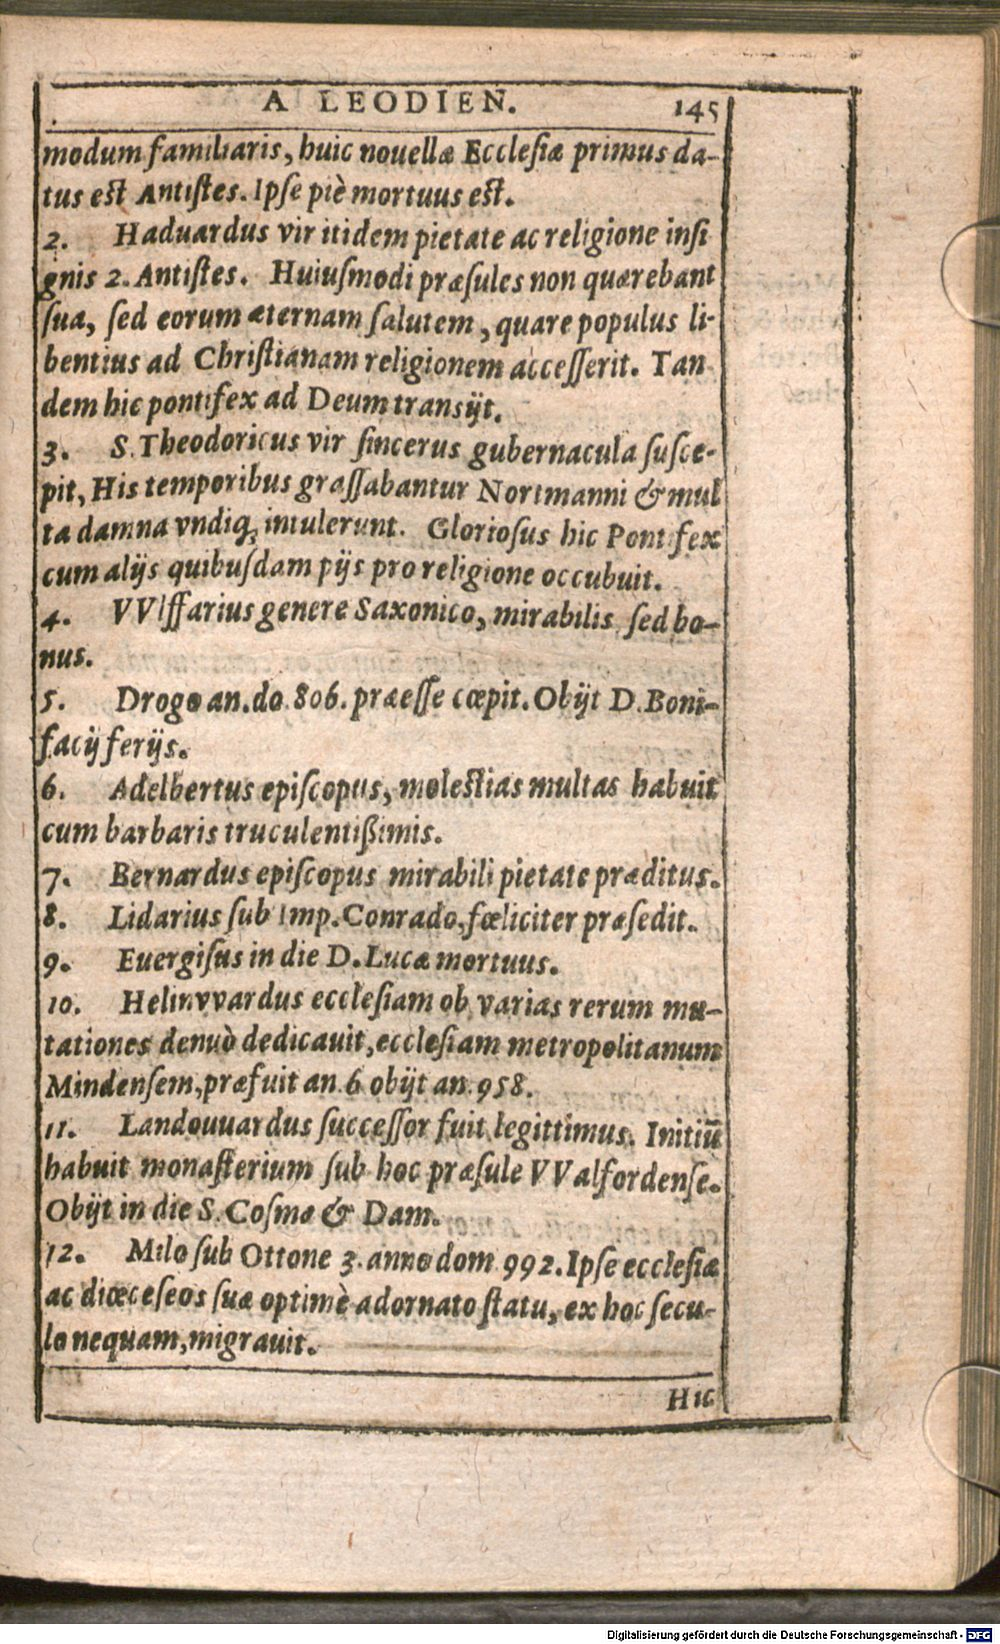 A LEODIEN. 145
modum familiaris, huic nouellæ Ecclesiæ primus da-
tus est Antistes. Ipse piè mortuus est.
2. Haduardus vir itidem pietate ac religione insi
gnis 2. Antistes. Huiusmodi præsules non quærebant
sua, sed eorum æternam salutem, quare populus li-
bentius ad Christianam religionem accesserit. Tan
dem hic pontifex ad Deum transijt.
3. S. Theodoricus vir sincerus gubernacula susce-
pit, His temporibus grassabantur Nortmanni & mul
ta damna vndiq; intulerunt. Gloriosus hic Pontifex
cum alijs quibusdam pijs pro religione occubuit.
4. VVlffarius genere Saxonico, mirabilis sed bo-
nus.
5. Drogo an. do. 806. præesse cœpit. Obijt D. Boni-
facij ferijs.
6. Adelbertus episcopus, molestias multas habuit
cum barbaris truculentißimis.
7. Bernardus episcopus mirabili pietate præditus.
8. Lidarius sub Imp. Conrado, fœliciter præsedit.
9. Euergisus in die D. Lucæ mortuus.
10. Helmvvardus ecclesiam ob varias rerum mu-
tationes denuò dedicauit, ecclesiam metropolitanum
Mindensem, præfuit an. 6 obijt an. 958.
11. Landouuardus successor fuit legittimus. Initiũ
habuit monasterium sub hoc præsule VValfordense.
Obijt in die S. Cosmæ & Dam.
12. Milo sub Ottone 3. anno dom 992. Ipse ecclesiæ
ac diœceseos suæ optimè adornato statu, ex hoc secu-
lo nequam, migrauit.
Hic
Digitalisierung gefördert durch die Deutsche Forschungsgemeinschaft - DFG